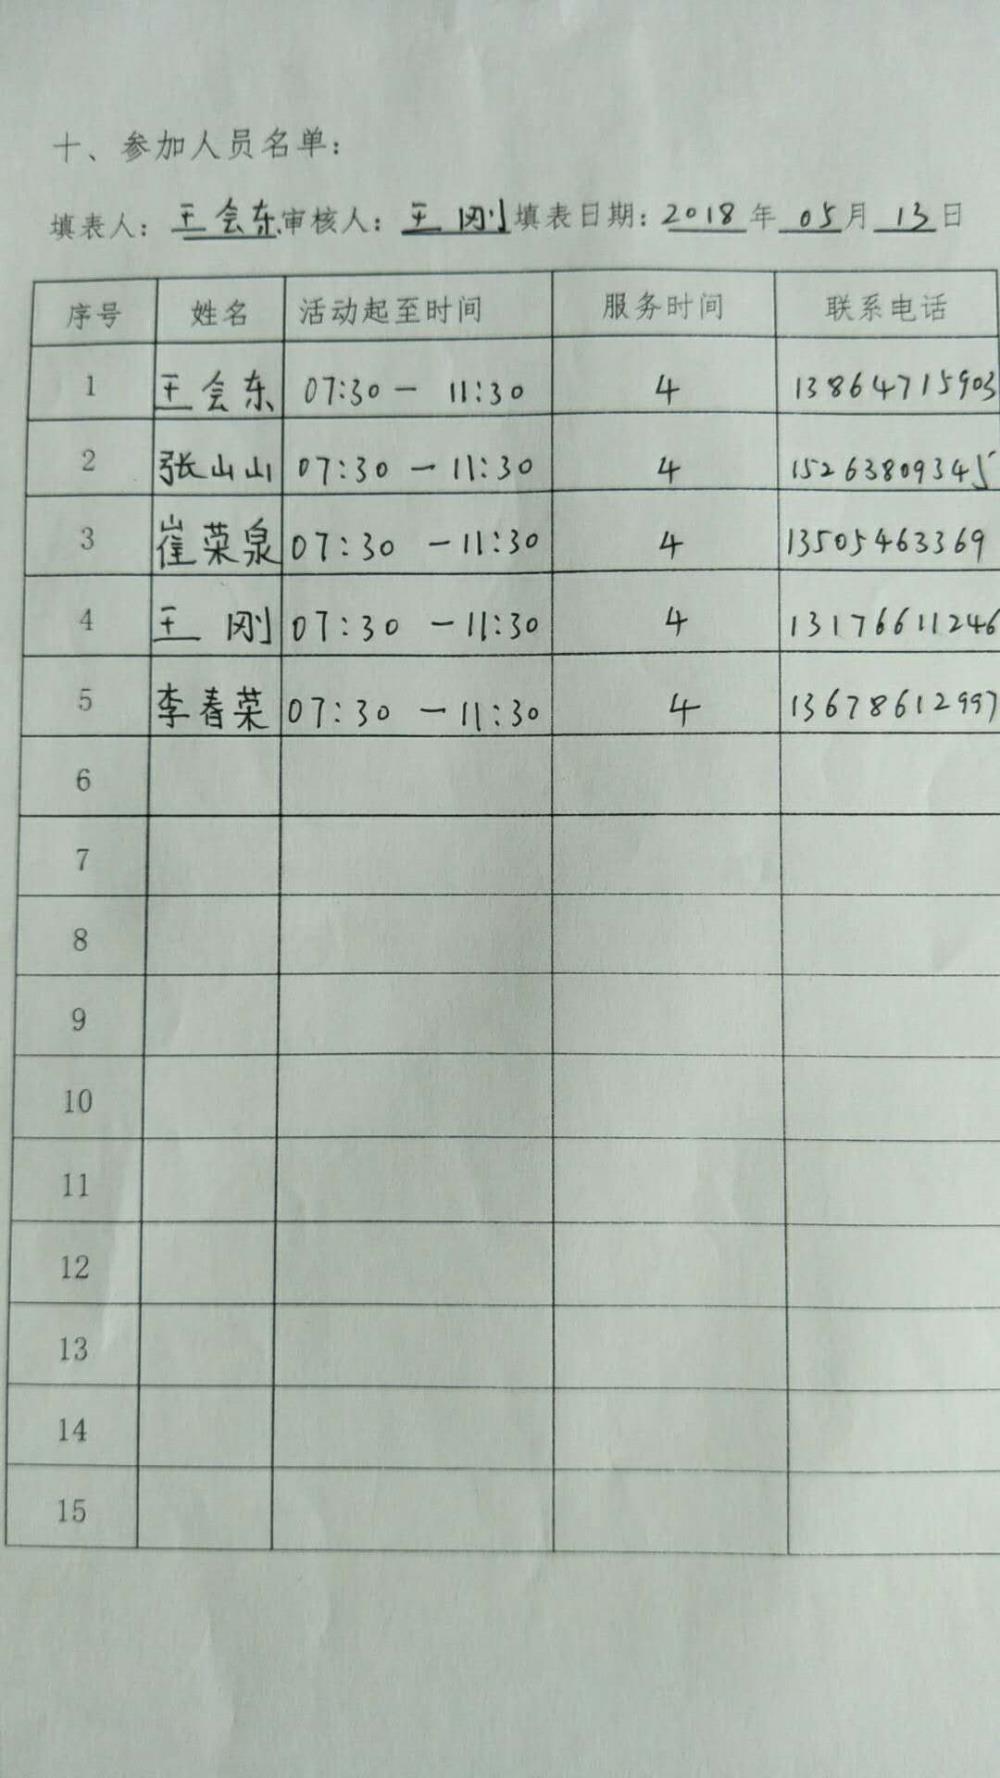 十、参加人员名单：
填表人：王会东 审核人：王刚 填表日期：2018年05月13日
序号 姓名 活动起至时间 服务时间 联系电话
1 王会东 07:30—11:30 4 13864715903
2 张山山 07:30—11:30 4 15263809345
3 崔荣泉 07:30—11:30 4 13505463369
4 王刚 07:30—11:30 4 13176611246
5 李春荣 07:30—11:30 4 13678612997
6
7
8
9
10
11
12
13
14
15